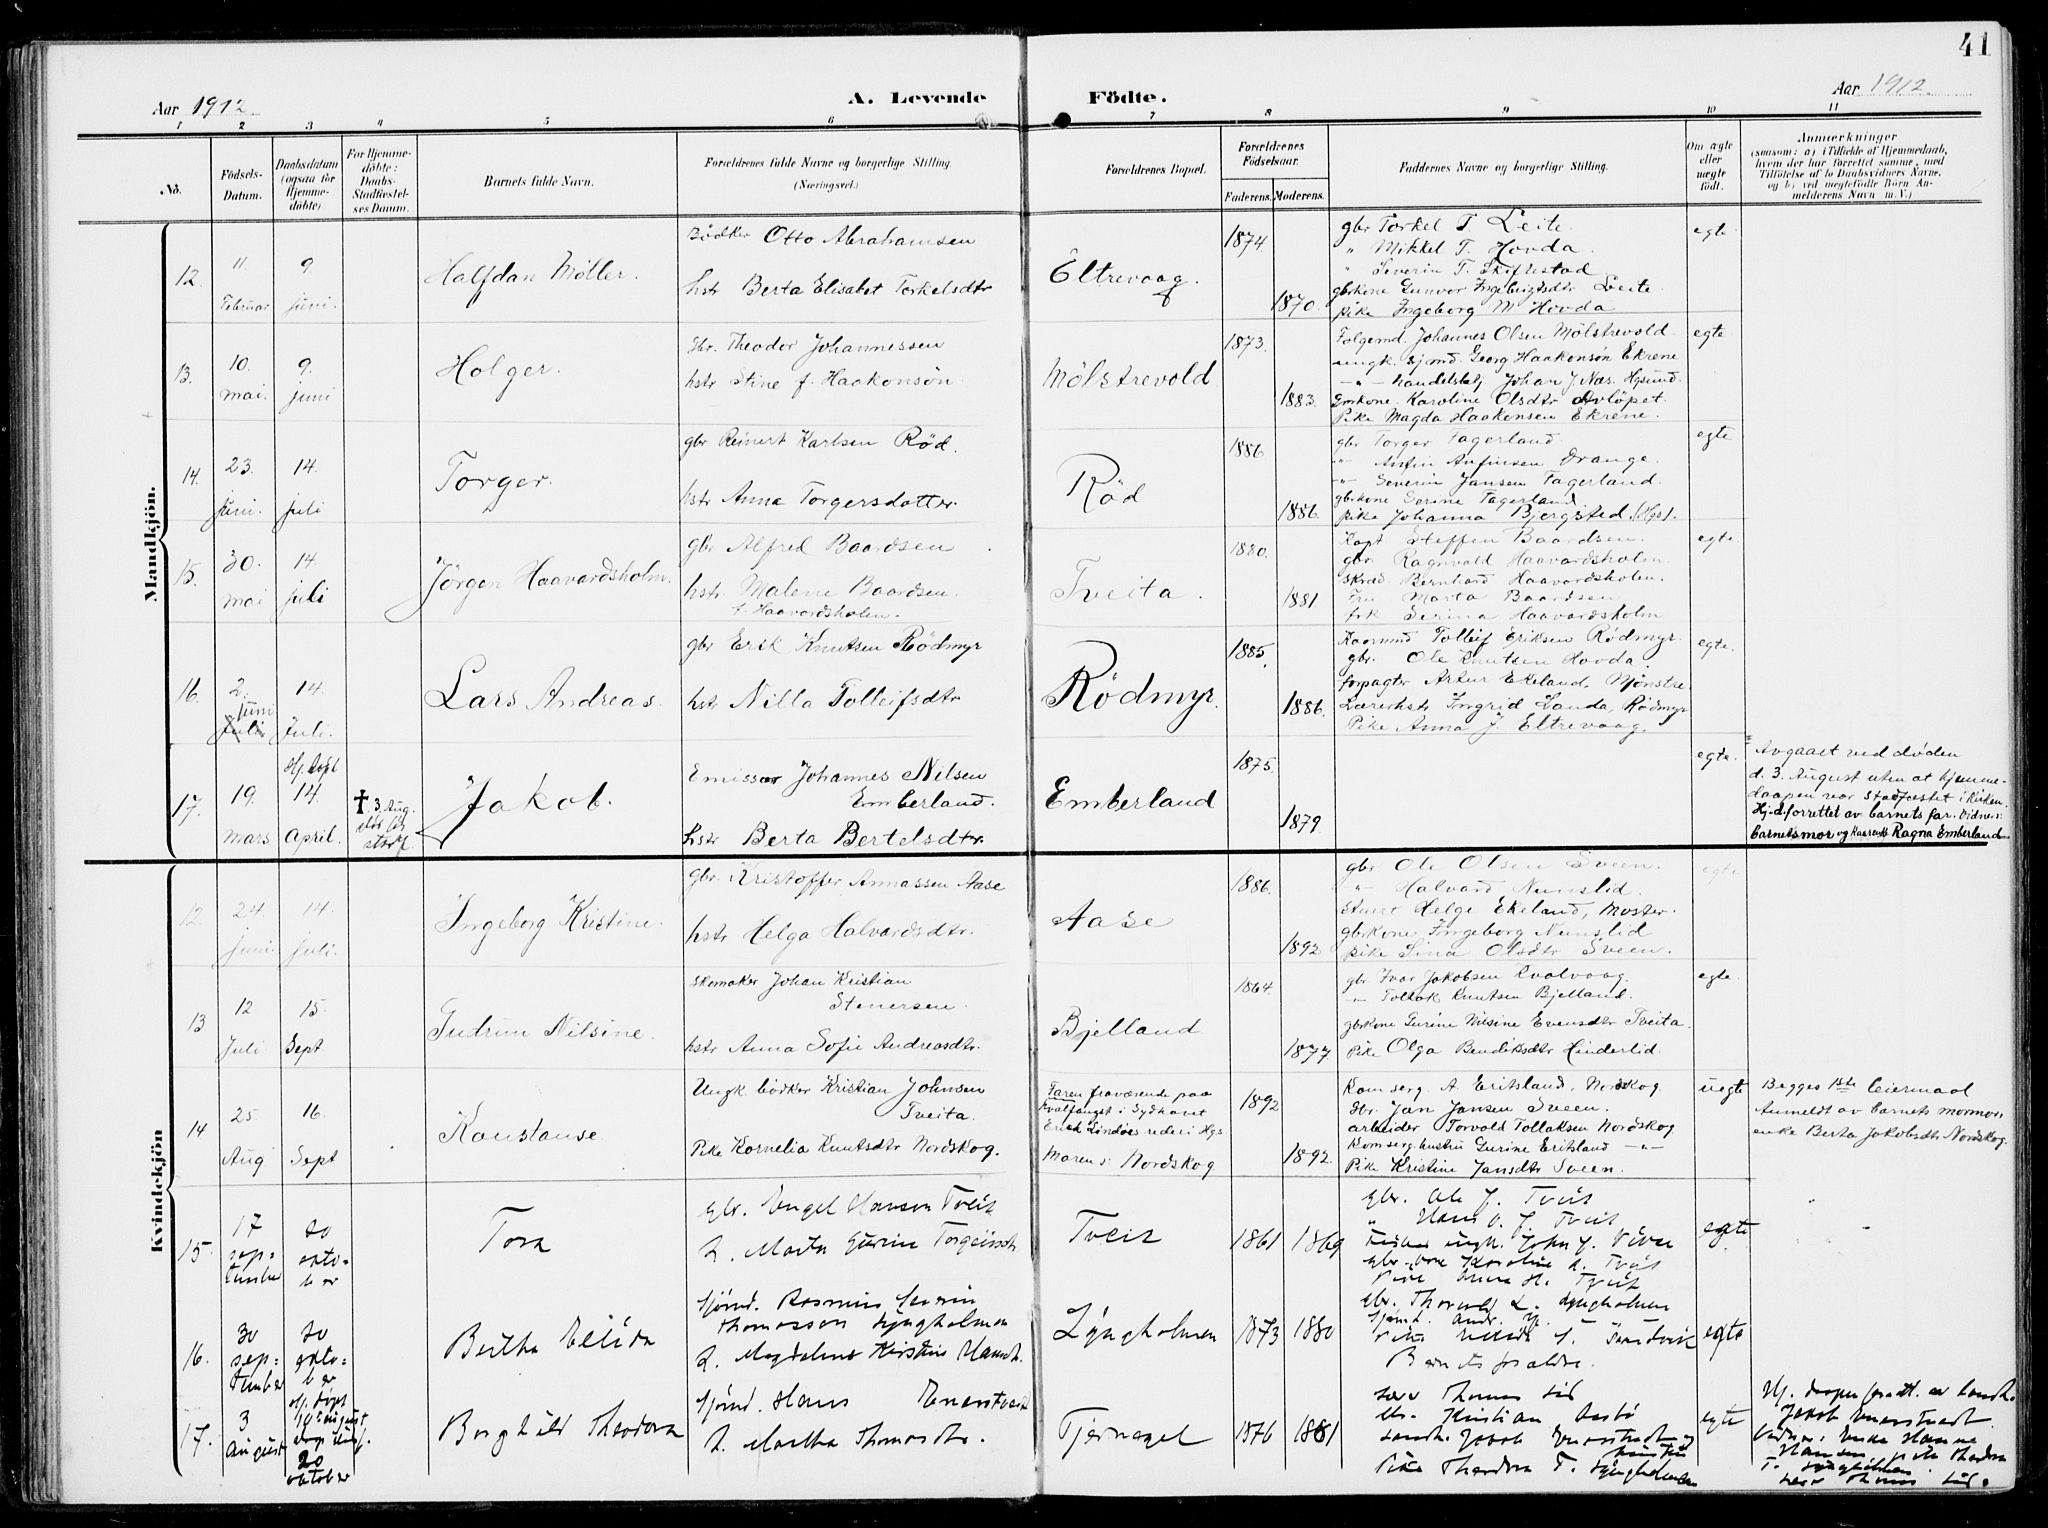 41
Aar 1912.
A. Levende
Födte.
Aar 1912.
1 2 3 4 5 6 7 8 9 10 11
No.
Födsels-
Datum.
Daabsdatum
(ogsaa for
Hjemme-
døbte)
For Hjemme-
döbte:
Daabs-
Stadfæstel-
ses Datum.
Barnets fulde Navn.
Forældrenes fulde Navne og borgerlige Stilling
(Næringsvei.)
Forældrenes Bopæl.
Forældrenes
Födselsaar.
Faderens. Moderens.
Faddernes Navne og borgerlige Stilling.
Om ægte
eller
uægte
födt.
Anmærkninger
(saasom: a) i Tilfælde af Hjemmedaab,
hvem der har forrettet samme, med
Tilföielse af to Daabsvidners Navne,
og b) ved uægtefödte Börn An-
melderens Navn m. V.)
Mandkjön.
12.
11.
Februar
9.
juni.
Halfdan Møller.
Bødker Otto Abrahamsen
hstr Berta Elisabet Torkelsdtr
Eltrevaag.
1874
1870.
gbr Torkel T. Leite.
" Mikkel T. Hovda.
" Severin T. Skifrestad
gbrkone Gunvor Ingebrigtsdtr Leite.
pike Ingeborg M Hovda
egte
13.
10.
mai.
9.
juni
Holger.
Gbr. Theodor Johannessen
hstr Stine f. Haakonsön.
Mølstrevold
1873.
1883.
Folgemd. Johannes Olsen Mølstrevold.
ungk. sjmd. Georg Haakonsön Ekrene
-"- handelsbtj Johan J. Næs. Hgsund.
Gbrkone Karoline Olsdtr Avløpet.
Pike Magda Haakonsen Ekrene.
egte
14.
23.
juni.
14.
juli
Torger.
gbr Reinert Karlsen Röd.
hstr Anna Torgersdatter.
Röd
1886
1886.
gbr Torger Fagerland.
-"- Anfin Anfinsen Orange.
-"- Severin Jansen Fagerland.
gbrkone Serine Fagerland
pike Johanna Bjergsted (Hgs).
egte
15.
30.
mai
14
juli
Jörgen Haavardsholm.
gbr Alfred Baardsen
hstr Malene Baardsen.
f. Haavardsholm.
Tveita.
1880.
1881.
Kapt Steffen Baardsen.
gbr. Ragnvald Haavardsholm.
skræd. Bernhard Haavardsholm.
Fru Marta Baardsen
frk Serina Haavardsholm
egte.
16.
2.
juni
Juli
14.
Juli.
Lars Andreas.
gbr Erik Knutsen Rödmyr
hst Nilla Tolleifsdtr
Rödmyr.
1885.
1886.
Kaarmd Tolleif Eriksen Rødmyr.
gbr. Ole Knutsen Hovda.
forpagter Artur Ekeland. Mjønstre.
Lærerhstr Ingrid Landa, Rödmyr
Pike Anna J. Eltrevaag.
egte.
17.
19.
mars
Hj. døpt
14.
April.
† 3 Aug.
Jakob.
Emissær Johannes Nilsen
Emberland.
hstr Berta Bertelsdtr.
Emberland
1875.
1879.
egte.
Avgaaet ved døden
d. 3. August uten at hjemme-
daapen var stadfæstet i kirken.
Hj.d. forrettet av barnets far. Vidner:
barnets mor og Ragna Emberland
Kvindekjön
12
24.
juni.
14.
juli.
Ingeborg Kristine.
gbr. Kristoffer Annassen Aase
hstr Helga Halvardsdtr.
Aase
1886.
1892
gbr Ole Olsen Sveen.
-"- Halvard Nunslid.
Stuert Helge Ekeland, Moster.
gbrkone Ingeborg Nunslid
pike Sina Olsdtr Sveen.
egte
13
12
Juli
15.
Sept
Gudrun Nilsine.
Skomaker Johan Kristian
Stenersen.
hstr Anna Sofie Andreasdtr.
Bjelland
1864.
1877
gbr Ivar Jakobsen Kvalvaag.
-"- Tollak Knutsen Bjelland.
gbrkone Gurine Nilsine Evensdtr Tveita.
Pike Olga Bendiksdtr Hinderlid.
egte.
14
25
Aug
16.
Sept
Konstanse.
Ungk. bödker Kristian Johnsen
Tveita.
Pike Kornelia Knutsdtr Nordskog.
Faren fraværende paa
Kvalfangst i Sydhavet
Erik Lindøes rederi Hgs
Morens: Nordskog
1892
1892.
Kom serg. A. Eriksland. Nordskog.
Gbr. Jan Jansen Sveen.
arbeider Torvald Tollaksen Nordskog
Komserg.hustru Gurine Eriksland -"-
Pike Kristine Jansdtr Sveen.
uegte
Begges 1ste leiermaal
Anmeldt av barnets mormor,
enke Berta Jakobsdtr Nordskog.
15.
17
sep-
tember
20
okto-
ber
Tora
gbr. Engel Hanson Tveit
h. Marta Gurine Torgeirsdtr
Tveit
1861
1869
gbr. Ole J. Tveit
" Hans J. Tveit
ungk. John J.
Karoline Tveit
Pike Anna H. Tveit
egte
16.
30
sep-
tember
20
okto-
ber
Bertha Elida
Sjömd. Rasmus Severin
Thomasson Lyngholmen
h. Magdalene Kirstine Hansdtr.
Lyngholmen
1873
1880
gbr. Thorvald L. Lyngholmen
Sjömd. Andr.
Barnets foraldre.
egte
17.
3
august
Hj. døpt
10 august
20
oktober
Borghild Theodora
Sjömd. Hans Enerstvedt
h. Martha Thomasdtr.
Tjernagel
1876
1881
Thomas Lid
gbr. Kristian
Jakob Enerstvedt
Pike Theodora T. Lyngholmen
egte
Hj. daapen forrett. av
Jakob Enerstvedt.
Vidner: Enke Hanna
Hansen Pike Theodora
T. Lyngholmen.
Thomas Lid.